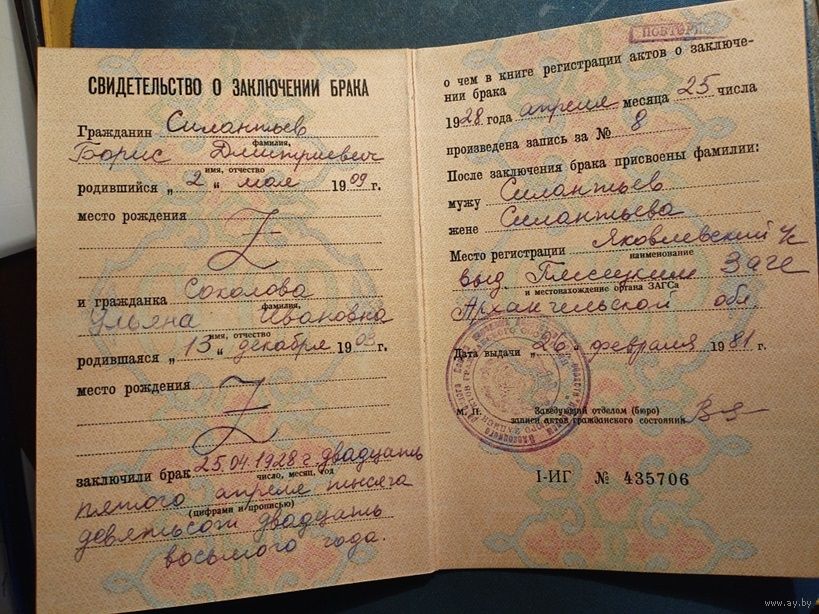 СВИДЕТЕЛЬСТВО О ЗАКЛЮЧЕНИИ БРАКА
Гражданин Силантьев
фамилия,
Борис Дмитриевич
имя, отчество
родившийся „ 2 “ мая 1909 г.
место рождения Z
и гражданка Соколова
фамилия,
Ульяна Ивановна
имя, отчество
родившаяся „ 13 “ декабря 1903 г.
место рождения Z
заключили брак 25.04.1928 г. двадцать
число, месяц, год
пятого апреля тысяча
(цифрами и прописью)
девятьсот двадцать
восьмого года.
ПОВТОРНОЕ
о чем в книге регистрации актов о заключе-
нии брака
1928 года апреля месяца 25 числа
произведена запись за № 8
После заключения брака присвоены фамилии:
мужу Силантьев
жене Силантьева
Место регистрации Яковлевский с/с
наименование
выд. Плесецким Заге
и местонахождение органа ЗАГСа
Архангельской обл.
Дата выдачи „ 26 “ февраля 1981 г.
М. П. Заведующий отделом (бюро)
записи актов гражданского состояния
I-ИГ № 435706
www.ay.by